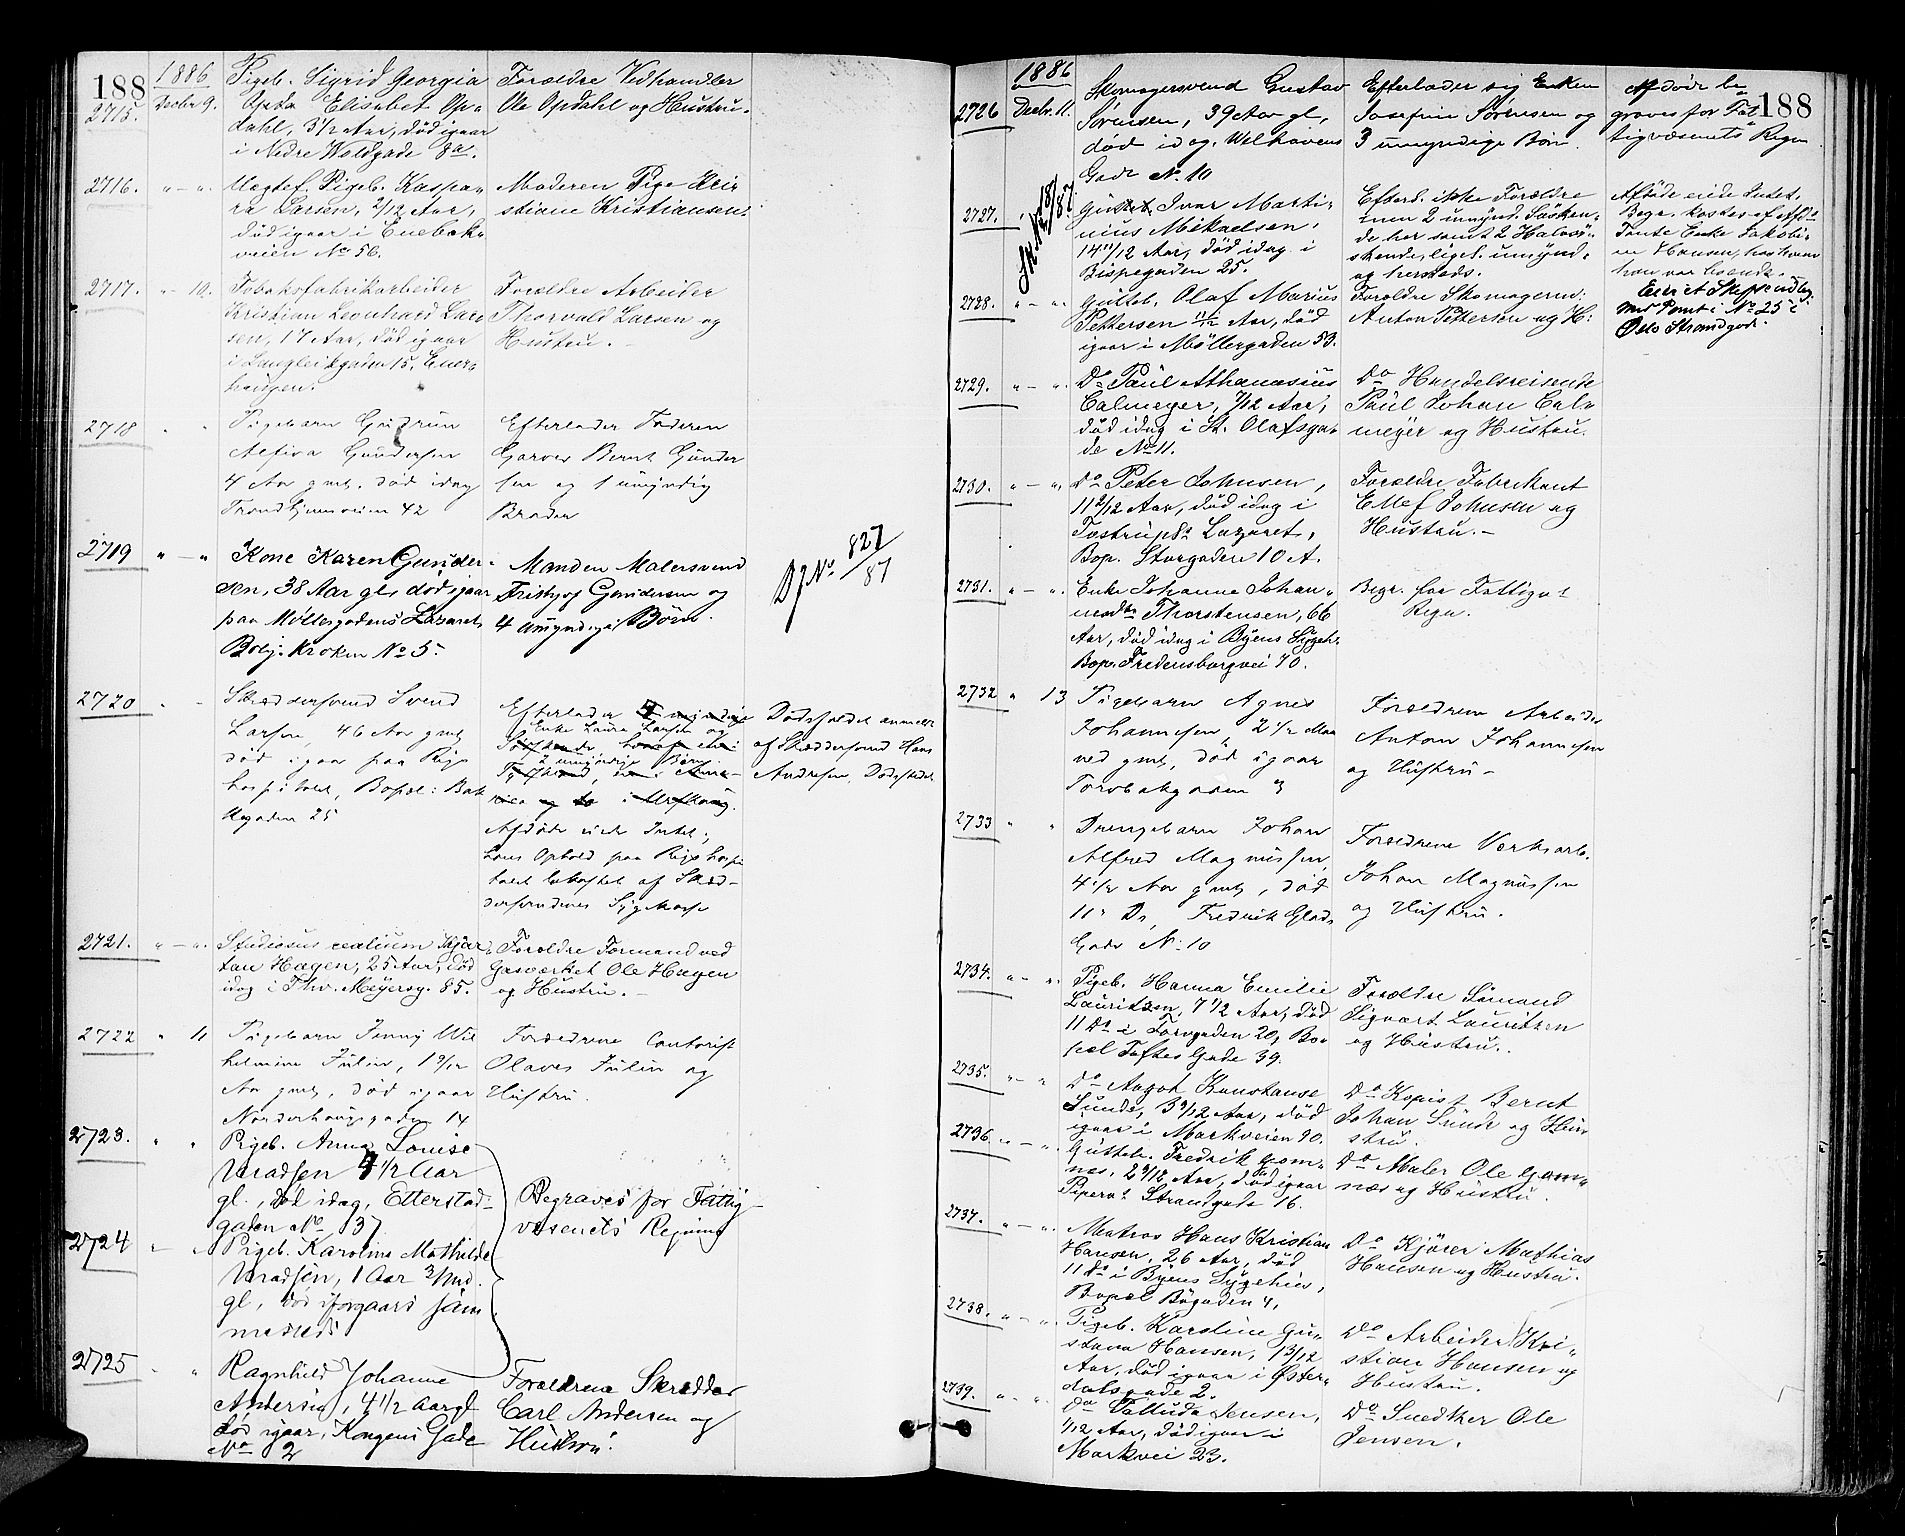 188
1886
2715. Decbr 9. Pigeb. Sigrid Georgia
Opdahl, 3 1/2 Aar, død igaar
i Nedre Voldgade 8a.
Forældre Vedhandler
Ole Opdahl og Hustru.
2716. " — " Uægtef. Pigeb. Kaspa-
ra Larsen, 2/12 Aar,
død igaar i Enebak-
veien No 56.
Moderen Pige Kri-
stiane Kristiansen.
2717. " — 10. Tobaksfabrikarbeider
Kristian Leonhard Lar-
sen, 17 Aar, død igaar
i Langleikgaden 15, Ener-
haugen.
Forældre Arbeider
Thorvald Larsen og
Hustru. —
2718 " " Pigebarn Gudrun
Alfiva Gundersen
4 Aar gml. død idag
Trondhjemsveien 42
Efterlader Faderen
Garver Bernt Gunder
sen og 1 umyndig
Broder
2719 " — " Kone Karen Gunder-
sen, 38 Aar gl, død igaar
paa Møllergadens Lazaret
Bolig: Kroken No 5.
Manden Malersvend
Fritjof Gundersen og
4 umyndige Børn.
Dj No 827/87
2720 " " Skræddersvend Svend
Larsen, 46 Aar gml
død igaar paa Rigs
hospitalet, Bopæl: Bak
kegaden 25
Efterlader
Enke Laura Larsen og
2 umyndige Børn.
Afdøde eiede Intet;
hans Ophold paa Rigshospi
talet bekostet af Skræd-
dersvendenes Sygekasse
Dødsfaldet anmeldt
af Skræddersvend Hans
Andresen, Dødsstedet
2721. " — " Studiosus realium Kjar-
tan Hagen, 25 Aar, død
idag i Thv. Meyersg. 85.
Forældre Formand ved
Gasværket Ole Hagen
og Hustru. —
2722 " 11 Pigebarn Jenny Wil
helmine Julin, 1 9/12
Aar gml, død igaar
Norderhougsgaden 14
Forældrene Contorist
Olaves Julin og
Hustru.
2723. " " Pigeb. Anna Louise
4 1/2 Aar
gl., død idag, Etterstad-
gaden No 37
Begraves for Fattig-
væsenets Regning
2724 " " Pigeb. Karoline Mathilde
1 Aar 3/Md.
gl, død iforgaars sam
mesteds
2725 " " Ragnhild Johanne
Andersen, 4 1/2 Aar gl
død igaar, Kongens Gade
No 2
Forældrene Skrædder
Carl Andersen og
Hustru.
188
1886
2726 Decbr. 11. Skomagersvend Gustav
Sørensen, 39 Aar gl,
død idag. Welhavens
Gade No 10
Efterlader sig Enken
Josefine Sørensen og
3 umyndige Børn.
Afdøde be
graves for Fat
tigvæsenets Regn
2727. Gutteb. Ivar Marti-
nius Mikaelsen,
14 11/12 Aar, død idag i
Bispegaden 25.
Efterl. ikke Forældre
men 2 umynd. Søsken-
de her samt 2 Halvsø-
skende, liget. umynd.
og hersteds.
Afdøde eiede Intet.
Begr. kostes af Afd.s
Tante Enke Jakobi-
ne Hansen, hos hvem
han var boende.
No 25 i
Oslo Strandgade.
2728. " — " Gutteb. Olaf Marius
Pettersen 11/12 Aar, død
igaar i Møllergaden 53.
Forældre Skomagersv.
Anton Pettersen og H:
2729. " — " Do Paul Athanasius
Calmeyer, 7/12 Aar,
død idag i St. Olafsga-
de No 11.
Do Handelsreisende
Paul Johan Cal-
meyer og Hustru.
2730. " — " Do Peter Johnsen,
11 2/12 Aar, død idag i
Tostrups Lazaret,
Bop. Storgaden 10 A.
Forældre Fabrikant
Ellef Johnsen og
Hustru. —
2731. " — " Enke Johanne Johan-
nesdtr Thorstensen, 66
Aar, død idag i Byens Sygeh.
Bop. Fredensborgvei 70.
Begr. for Fattigv.s
Regn.
2732 " 13 Pigebarn Agnes
Johannesen, 2 1/2 Maa
ned gml, død igaar
Torvbakgaden 3
Forældrene Arbeider
Anton Johannesen
og Hustru —
2733 " " Drengebarn Johan
Alfred Magnussen,
4 1/2 Aar gml, død
11te Ds, Fredrik Glads
Gade No 10
Forældrene Værksarb.
Johan Magnussen
og Hustru.
2734. " — " Pigeb. Hanna Emilie
Lauritzen, 7 1/2 Aar, død
11 Ds i Torvgaden 20, Bo-
pæl Toftes Gade 39.
Forældre Sømand
Sigvart Lauritzen
og Hustru.
2735. " — " Do Aagot Konstanse
Sunde, 3 9/12 Aar, død
igaar i Markveien 90.
Do Kopist Bernt
Johan Sunde og Hu-
stru.
2736. " — " Gutteb. Fredrik Gom-
næs, 2 9/12 Aar, død igaar
Piperv.s Strandgade 16.
Do Maler Ole Gom-
næs og Hustru.
2737. " — " Matros Hans Kristian
Hansen, 26 Aar, død
11 Ds i Byens Sygehus,
Bopæl Bøgaden 4.
Do Kjører Mathias
Hansen og Hustru.
2738. " — " Pigeb. Karoline Gu-
stava Hansen, 1 3/12
Aar, død igaar i Øster-
dalsgade 2.
Do Arbeider Kri-
stian Hansen og
Hustru.
2739. " — " Do Valluda Jensen,
1/12 Aar, død igaar i
Markvei 23.
Do Snedker Ole
Jensen.